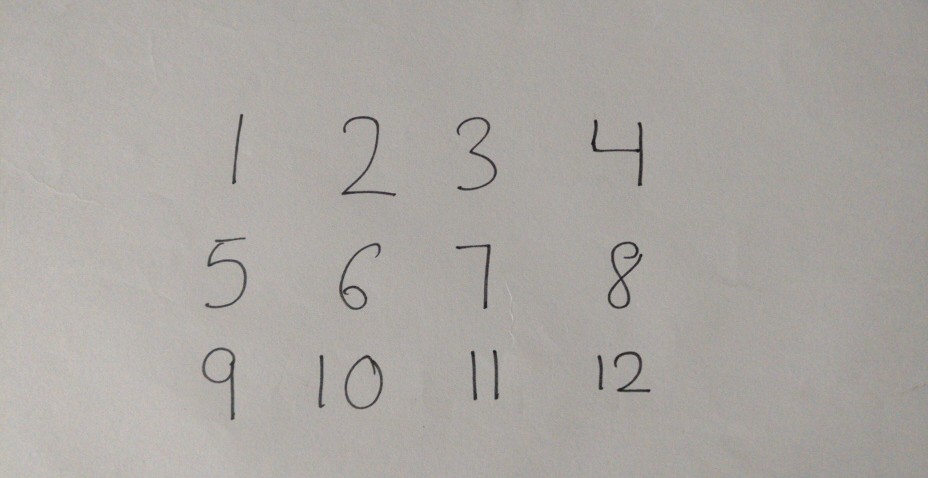 1 2 3 4
5 6 7 8
9 10 11 12